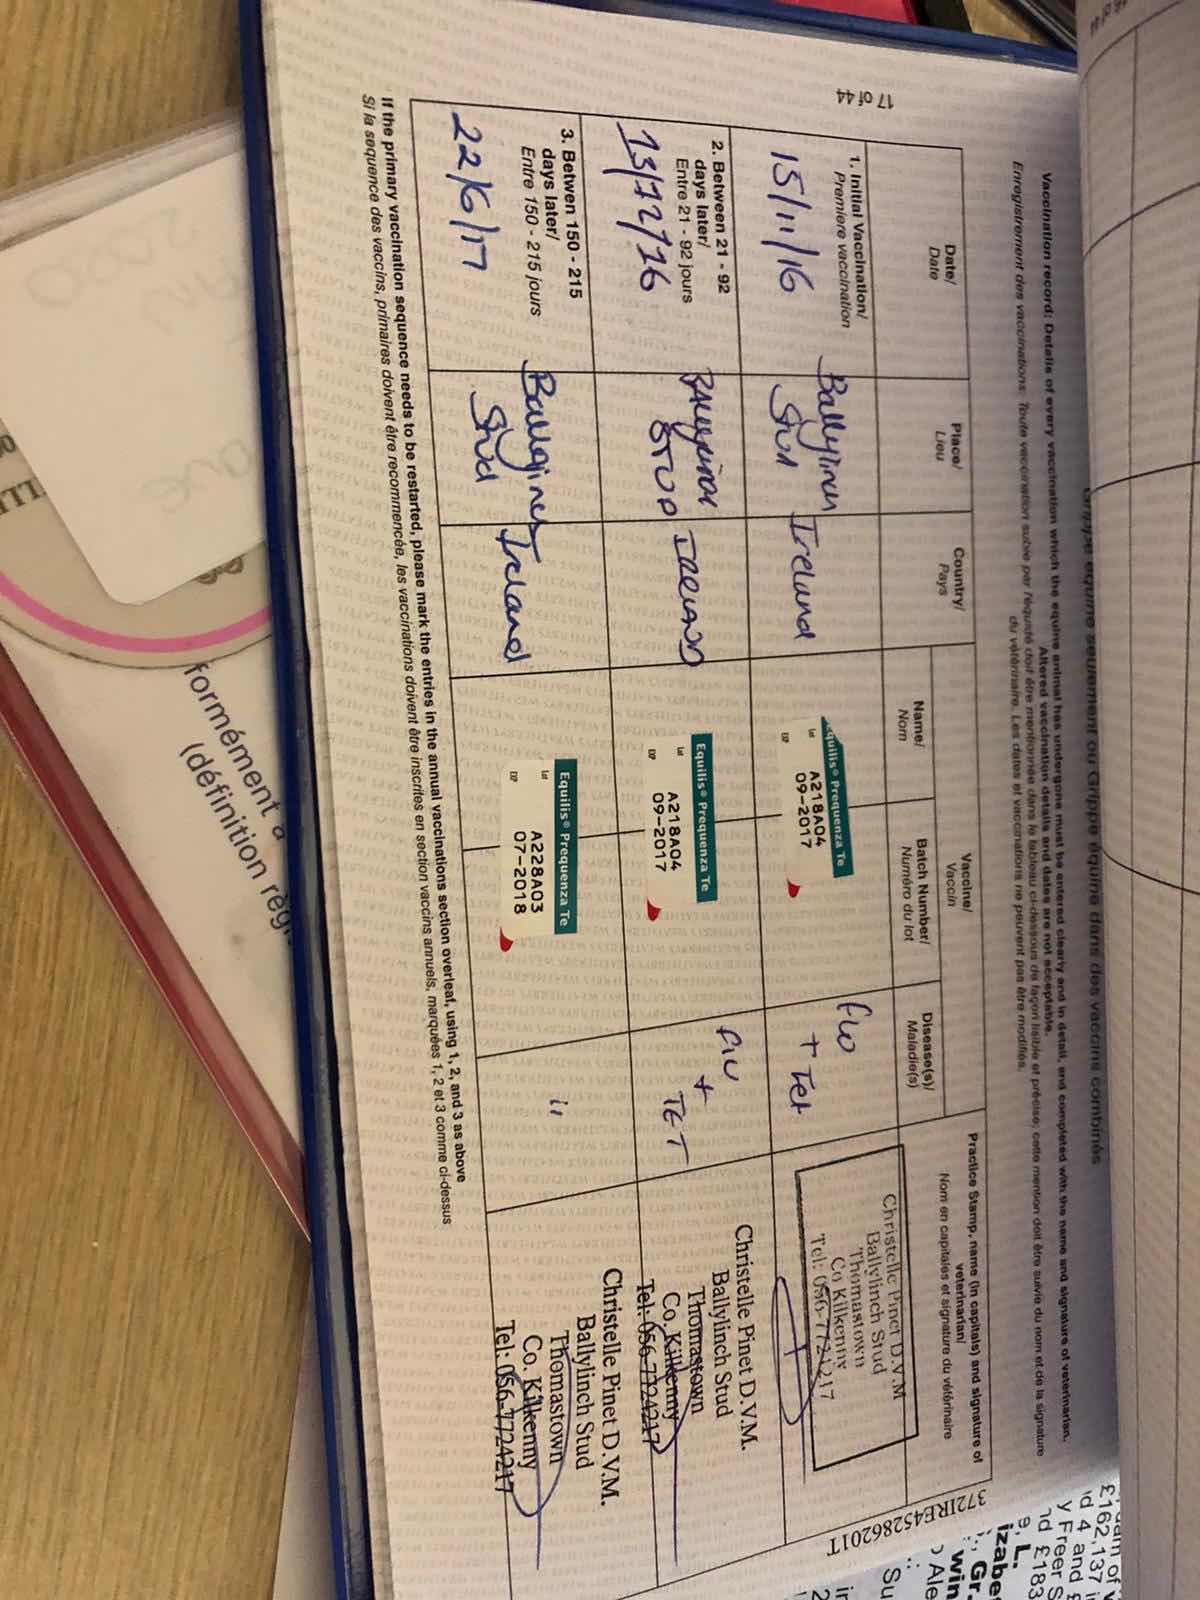 17 of 44
Grippe equine seulement ou Grippe équine dans des vaccins combinés
Vaccination record: Details of every vaccination which the equine animal has undergone must be entered clearly and in detail, and completed with the name and signature of veterinarian.
Altered vaccination details and dates are not acceptable.
Enregistrement des vaccinations: Toute vaccination subie par l'équidé doit être mentionnée dans le tableau ci-dessous de façon lisible et précise; cette mention doit être suivie du nom et de la signature
du vétérinaire. Les dates et vaccinations ne peuvent pas être modifiés.
Date/
Date
Place/
Lieu
Country/
Pays
Vaccine/
Vaccin
Name/
Nom
Batch Number/
Numéro du lot
Disease(s)/
Maladie(s)
Practice Stamp, name (in capitals) and signature of
veterinarian/
Nom en capitales et signature du vétérinaire
1. Initial Vaccination/
Premiere vaccination
15/11/16
Ballylinch
Stud
Ireland
Equilis® Prequenza Te
Lot A218A04
EXP 09-2017
flu
+ Tet
Christelle Pinet D.V.M
Ballylinch Stud
Thomastown
Co Kilkenny
Tel: 056-7724217
2. Between 21 - 92
days later/
Entre 21 - 92 jours
13/12/16
BALLYLINCH
STUD
IRELAND
Equilis® Prequenza Te
Lot A218A04
EXP 09-2017
FLU
+
TET
Christelle Pinet D.V.M.
Ballylinch Stud
Thomastown
Co. Kilkenny
Tel: 056-7724217
3. Betwen 150 - 215
days later/
Entre 150 - 215 jours
22/6/17
Ballylinch
Stud
Ireland
Equilis® Prequenza Te
Lot A228A03
EXP 07-2018
Christelle Pinet D.V.M.
Ballylinch Stud
Thomastown
Co. Kilkenny
Tel: 056-7724217
If the primary vaccination sequence needs to be restarted, please mark the entries in the annual vaccinations section overleaf, using 1, 2, and 3 as above
Si la sequence des vaccins, primaires doivent être recommencée, les vaccinations doivent être inscrites en section vaccins annuels, marquées 1, 2 et 3 comme ci-dessus
372IRE45286201T
formément à
(définition règl
£162,137 i
y Freer S
nd £183
L.
izabe
win